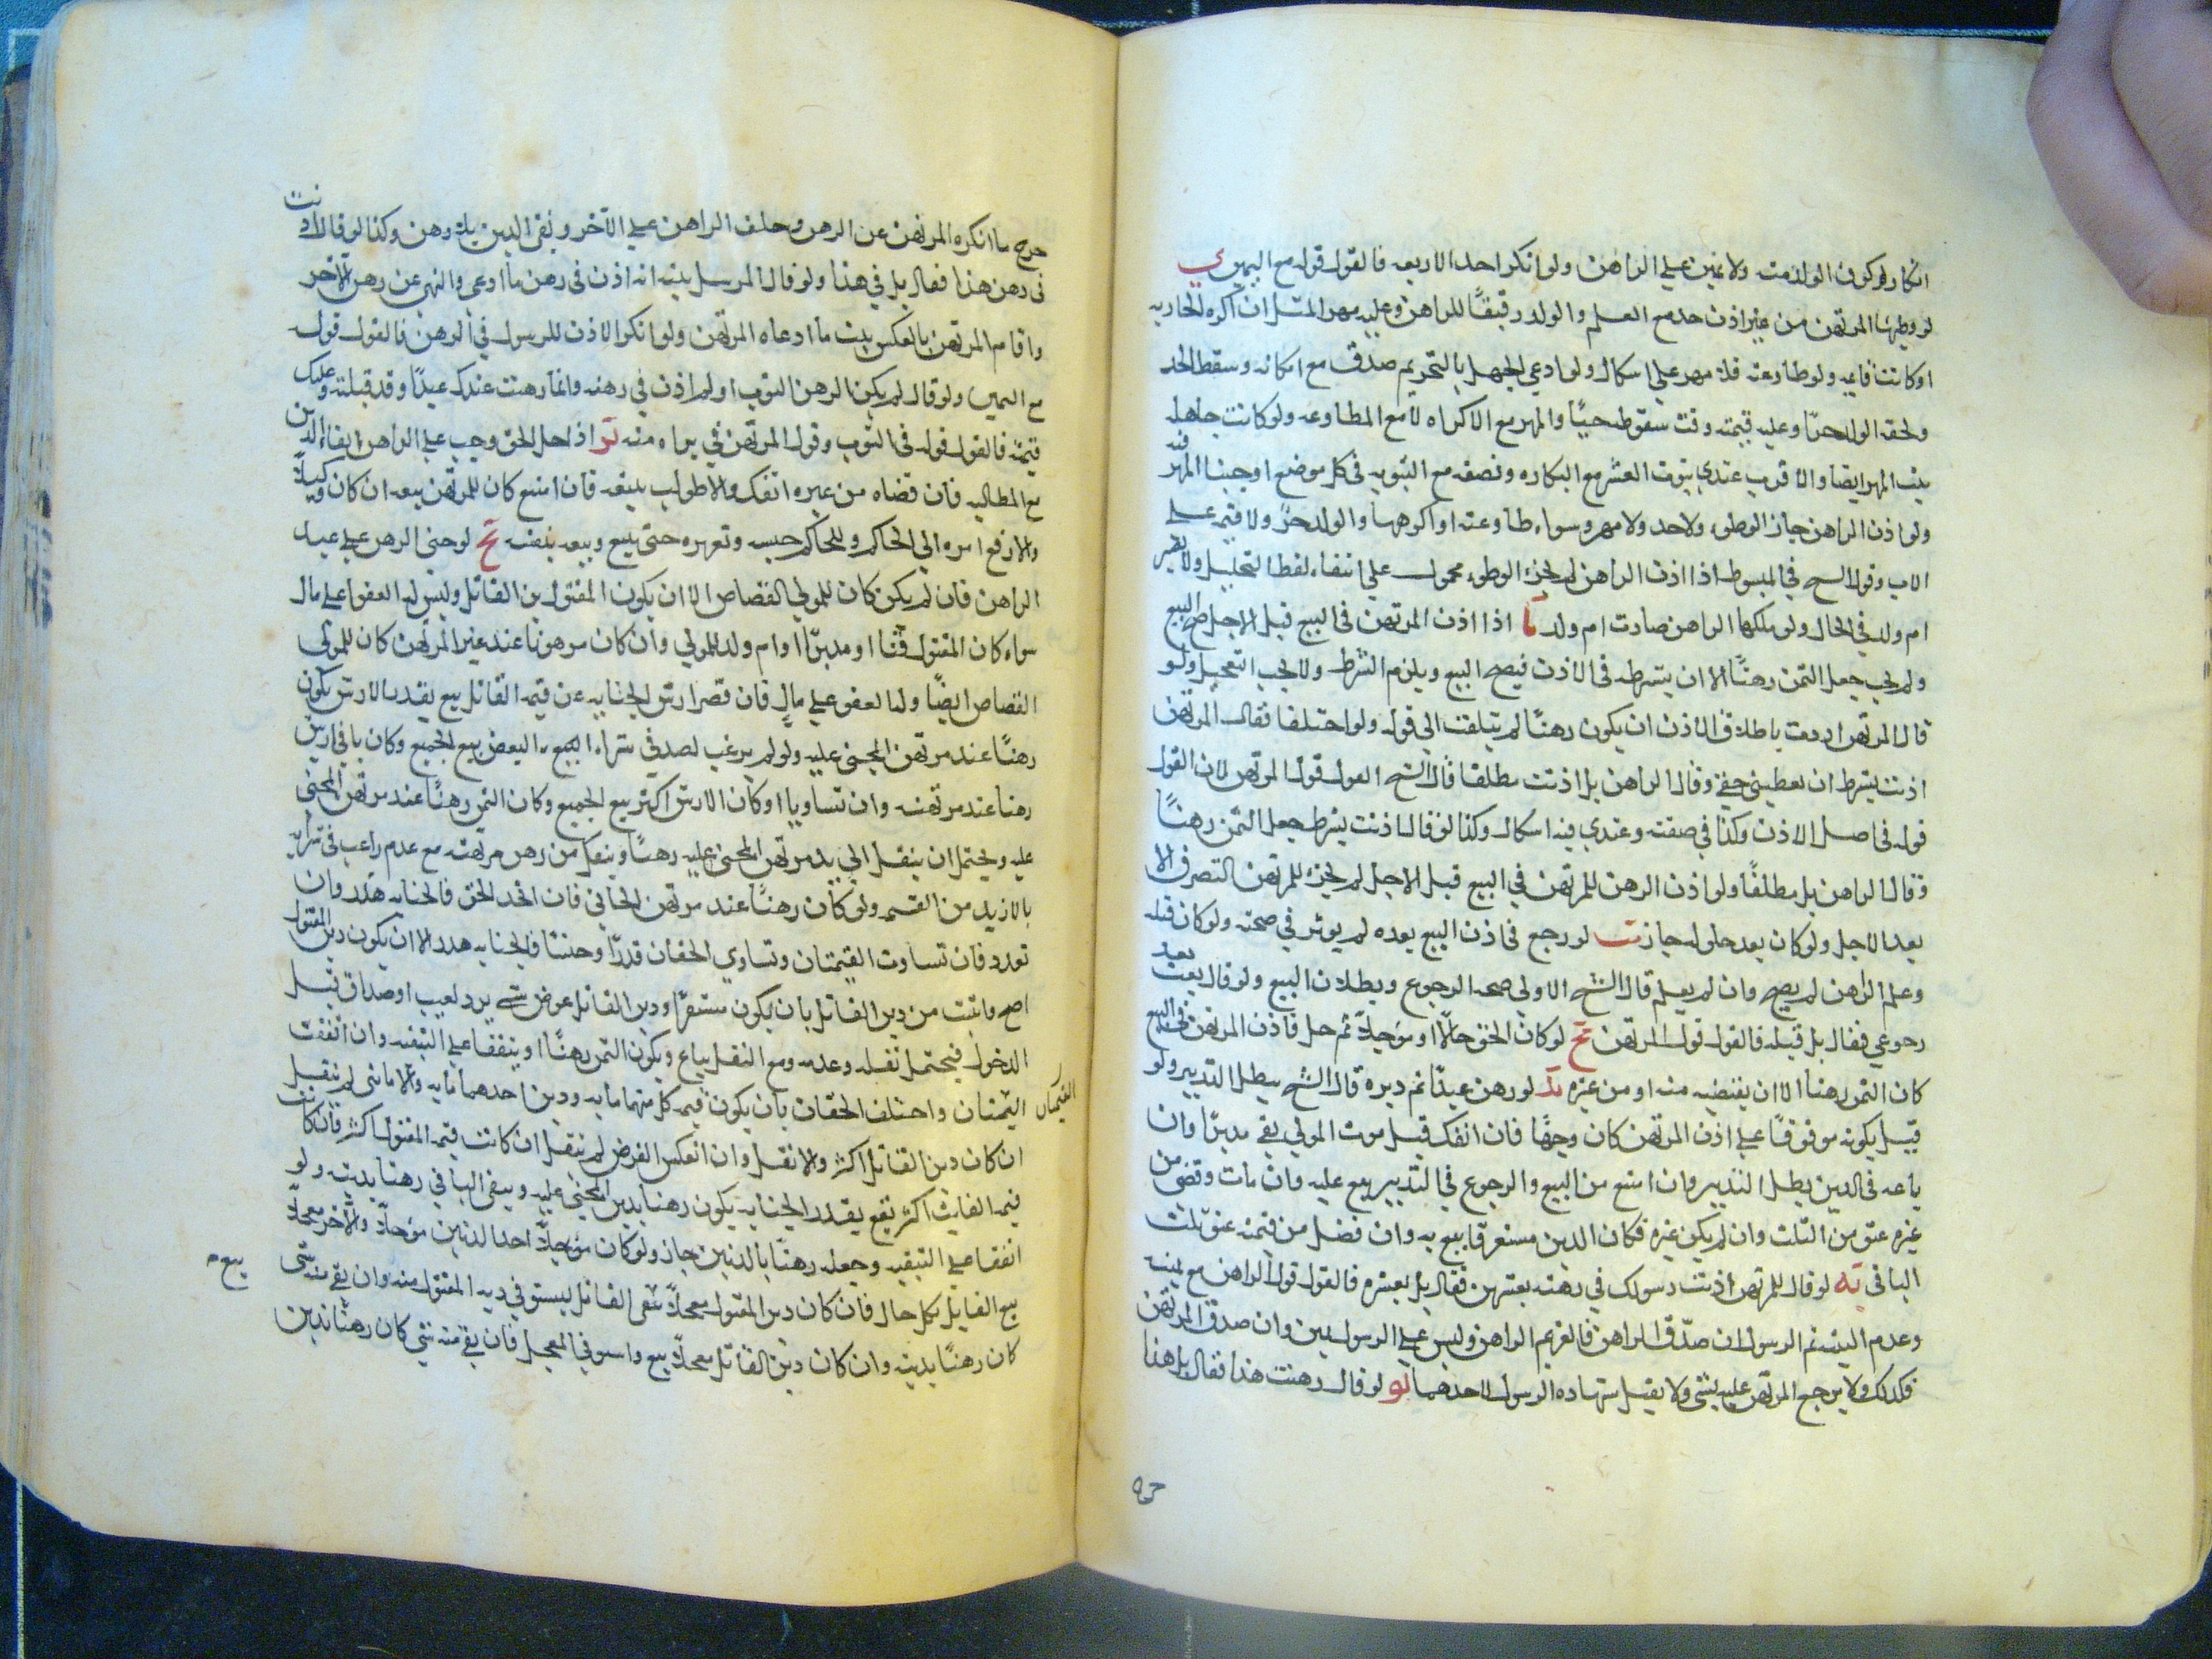 انكاره كون الولد منه ولا يمين على الراهن ولو انكر احد الاربعه فالقول قوله مع اليمين ي
لو وطيها المرتهن من غير اذن حد مع العلم والولد رقيقًا للراهن وعليه مهر المثل ان اكره الجاريه
او كانت نايمه ولو طاوعته فلا مهر على اشكال ولو ادعى الجهل بالتحريم صدق مع امكانه وسقط الحد
ولحقه الولد حرًا وعليه قيمته وقت سقوطه حيًا والمهر مع الاكراه لا مع المطاوعه ولو كانت جاهله
يثبت المهر ايضا والاقرب عندي ثبوت العشر مع البكاره ونصفه مع الثيوبه في كل موضع اوجبنا المهر فيه
ولو اذن الراهن جاز الوطي ولا حد ولا مهر وسواء طاوعته او اكرهها والولد حرّ ولا قيمه على
الاب وقول الشيخ في المبسوط اذا اذن الراهن لم يجز الوطي محمول على انتفاء لفظ التحليل ولا تصير
ام ولد في الحال ولو ملكها الراهن صارت ام ولد يا اذا اذن المرتهن في البيع قبل الاجل صح البيع
ولم يجب جعل الثمن رهنًا الا ان يشترطه في الاذن فيصح البيع ويلزم الشرط ولا يجب التعجيل ولو
قال المرتهن اردت باطلاق الاذن ان يكون رهنًا لم يلتفت الى قوله ولو اختلفا فقال المرتهن
اذنت بشرط ان تعطيني حقي وقال الراهن بل اذنت مطلقا قال الشيخ القول قول المرتهن لان القول
قوله في اصل الاذن وكذا في صفته وعندي فيه اشكال وكذا لو قال اذنت بشرط جعل الثمن رهنًا
وقال الراهن بل مطلقًا ولو اذن الراهن للمرتهن في البيع قبل الاجل لم يجز للمرتهن التصرف الا
بعد الاجل ولو كان بعد حلوله جاز يب لو رجع في اذن البيع بعده لم يوثر في صحته ولو كان قبله
وعلم الراهن لم يصح وان لم يعلم قال الشيخ الاولى صحه الرجوع وبطلان البيع ولو قال بعت بعد
رجوعي فقال بل قبله فالقول قول المرتهن يج لو كان الحق حالًا او مؤجلًا ثم حل فاذن المرتهن في البيع
كان الثمن رهنا الا ان يقضيه منه او من غيره يد لو رهن عبدًا ثم دبره قال الشيخ يبطل التدبير ولو
قيل بكونه موقوفًا على اذن المرتهن كان وجهًا فان انفك قبل موت المولى بقي مدبرًا وان
باعه في الدين بطل التدبير وان امتنع من البيع والرجوع في التدبير بيع عليه وان مات وقضى من
غيره عتق من الثلث وان لم يكن غيره فكان الدين مستغرقًا بيع به وان فضل من قيمته عتق ثلث
الباقي يه لو قال للمرتهن اذنت رسولك في رهنه بعشرين فقال بل بعشره فالقول قول الراهن مع يمينه
وعدم البينه ثم الرسول ان صدّق الراهن فالغريم الراهن وليس على الرسول يمين وان صدق المرتهن
فكذلك ولا يرجع المرتهن عليه بشي ولا يقبل شهاده الرسول لاحدهما يو لو قال رهنت هذا فقال بل هذا
خرج ما انكره المرتهن عن الرهن وحلف الراهن على الآخر وبقي الدين بلا رهن وكذا لو قال اذنت
في رهن هذا فقال بل في هذا ولو قال المرسل بينه انه اذن في رهن ما ادعى والنهي عن رهن الآخر
واقام المرتهن بالعكس يثبت ما ادعاه المرتهن ولو انكر الاذن للرسول في الرهن فالقول قوله
مع اليمين ولو قال لم يكن الرهن الثوب او لم اذن في رهنه وانما رهنت عندك عبدًا وقد قبلته وعليك
قيمته فالقول قوله في الثوب وقول المرتهن في براءه منه يز اذا حل الحق وجب على الراهن ايفاء الدين
مع المطالبه فان قضاه من غيره انفك والا طولب ببيعه فان امتنع كان للمرتهن بيعه ان كان وكيلًا
والا رفع امره الى الحاكم وللحاكم حبسه وتعزيره حتى يبيع وبيعه بنفسه يح لو جنى الرهن على عبد
الراهن فان لم يكن كان للمولى القصاص الا ان يكون المقتول بن القاتل وليس له العفو على مال
سواء كان المقتول قنًا او مدبرًا او ام ولد للمولى وان كان مرهونا عند غير المرتهن كان للمولى
القصاص ايضًا وله العفو على مال فان قصر ارش الجنايه عن قيمه القاتل بيع بقدر الارش يكون
رهنًا عند مرتهن المجني عليه ولو لم يرغب احد في شراء البعض بيع الجميع وكان باقي ارش
رهنا عند مرتهنه وان تساويا او كان الارش اكثر بيع الجميع وكان الثمن رهنًا عند مرتهن المجنى
عليه ويحتمل ان ينقل الى يد مرتهن المجنى عليه رهنًا وينفك من رهن مرتهنه مع عدم راغب في شرائه
بالازيد من القسمه ولو كان رهنًا عند مرتهن الجاني فان اتحد الحق فالجنايه هدر وان
تعدد فان تساوت القيمتان وتساوى الحقان قدرًا وجنسًا فالجنايه هدر الا ان يكون دين المقتول
اصح واثبت من دين القاتل بان يكون مستقرًا ودين القاتل عوض شي يرد لعيب او صداق قبل
الدخول فيحتمل نقله وعدمه ومع النقل يباع ويكون الثمن رهنًا او يتفقا على التبقيه وان اتفقت
القيمتان
الثمنان واختلف الحقان بان يكون قيمه كل منهما مايه ودين احدهما مايه والاخر مائتين لم ينقل
ان كان دين القاتل اكثر والا نقل وان انعكس الفرض لم ينقل ان كانت قيمه المقتول اكثر فان كانت
قيمه القاتل اكثر بيع بقدر الجنايه يكون رهنا بدين المجني عليه وبيقى الباقي رهنا بدينه ولو
اتفقا على التبقيه وجعله رهنًا بالدينين جاز ولو كان مؤجلًا احد الدينين مؤجلًا والآخر معجلًا
بيع القاتل بكل حال فان كان دين المقتول معجلًا بيع القاتل ليستوفي ديه المقتول منه وان بقي منه شي
بيع م
كان رهنًا بدينه وان كان دين القاتل معجلًا بيع واستوفي المعجل فان بقي منه شي كان رهنًا بدين